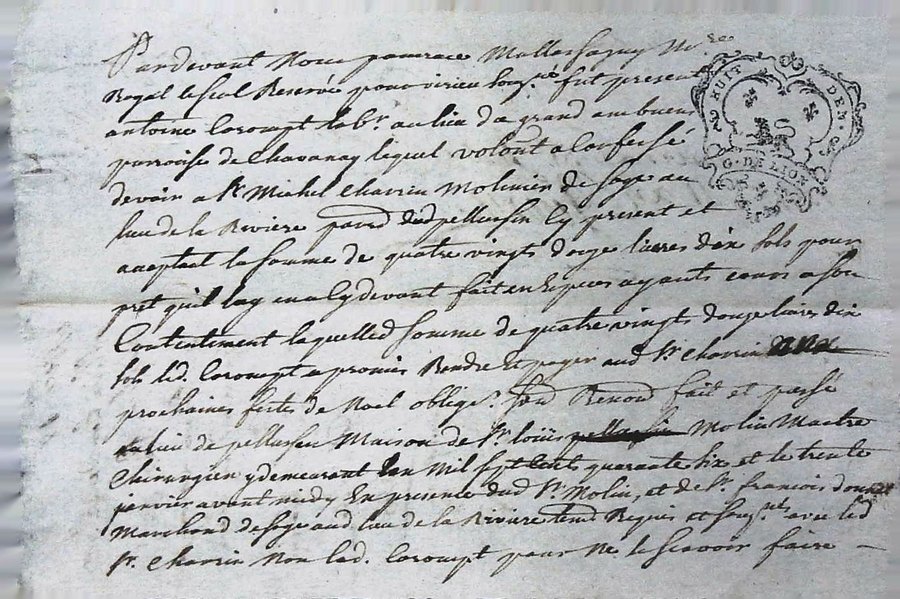 Pardevant Nous pancrace Mallassagny No.re
Royal le seul Reservé pour virieu Sousg.né fut present
antoine Corompt lab.r au lieu d a grand ambuen
parroisse de Chavanay lequel volont a Confessé
devoir a S.r Michel Charrin Molinier de Soye au
lieu de la Riviere paroi dud pellussin Cy present et
acceptant la somme de quatre vingts douze livres dix sols pour
pret quil luy en a Cy devant fait en Especes ayants cours a son
Contentement laquelled somme de quatre vingts douze livres dix
sols led. Corompt a promis Rendre Et payer aud S.r Charrin aux
prochaines festes de Noel oblige.t Renond fait et passé
au lieu de pellussin Maison de S.r loüis Molin Maitre
Chirurgien y demeurant lan Mil sept Cents quarante six et le trente
janvier avant midy En presence dud S.r Molin, et de S.r francois
Marchand de Soye aud lieu de la Riviere Requis et sousg.nés avec led
S.r Charrin Non led. Corompt pour Ne le scavoir faire
HUIT DEN.
G. DE LION